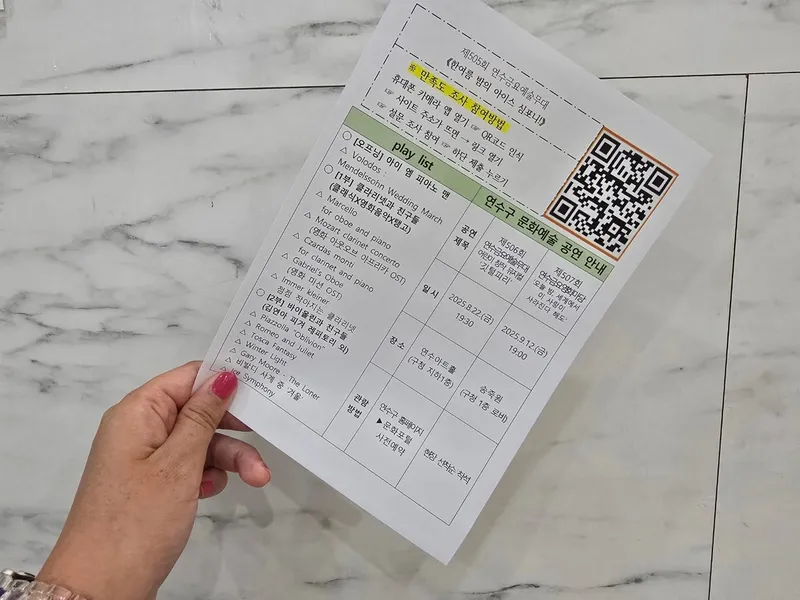 제505회 연수금요예술무대
《한여름 밤의 아이스 심포니》
※ 만족도 조사 참여방법
휴대폰 카메라 앱 열기 ☞ QR코드 인식
☞ 사이트 주소가 뜨면 → 링크 열기
☞ 설문 조사 참여 ☞ 하단 제출 누르기
play list
○ [오프닝] 아이 엠 피아노 맨
△ Volodos :
Mendelssohn Wedding March
○ [1부] 클라리넷과 친구들
(클래식X영화음악X탱고)
△ Marcello
for oboe and piano
△ Mozart clarinet concerto
(영화 아웃오브 아프리카 OST)
△ Czardas monti
for clarinet and piano
△ Gabriel's Oboe
(영화 미션 OST)
△ Immer kleiner
점점 작아지는 클라리넷
○ [2부] 바이올린과 친구들
(김연아 피겨 레퍼토리 외)
△ Piazzolla "Oblivion"
△ Romeo and Juliet
△ Tosca Fantasy
△ Winter Light
△ Gary Moore - The Loner
△ 비발디 사계 중 겨울
Ice Symphony
연수구 문화예술 공연 안내
공연
제목
제506회
연수금요예술무대
어린이 창작 뮤지컬
'깃털피리'
제507회
연수금요영화마당
'오늘 밤, 세계에서
이 사랑이
사라진다 해도'
일시
2025.8.22.(금)
19:30
2025.9.12.(금)
19:00
장소
연수아트홀
(구청 지하1층)
송죽원
(구청 1층 로비)
관람
방법
연수구 홈페이지
▶문화포털
사전예약
현장 선착순 착석